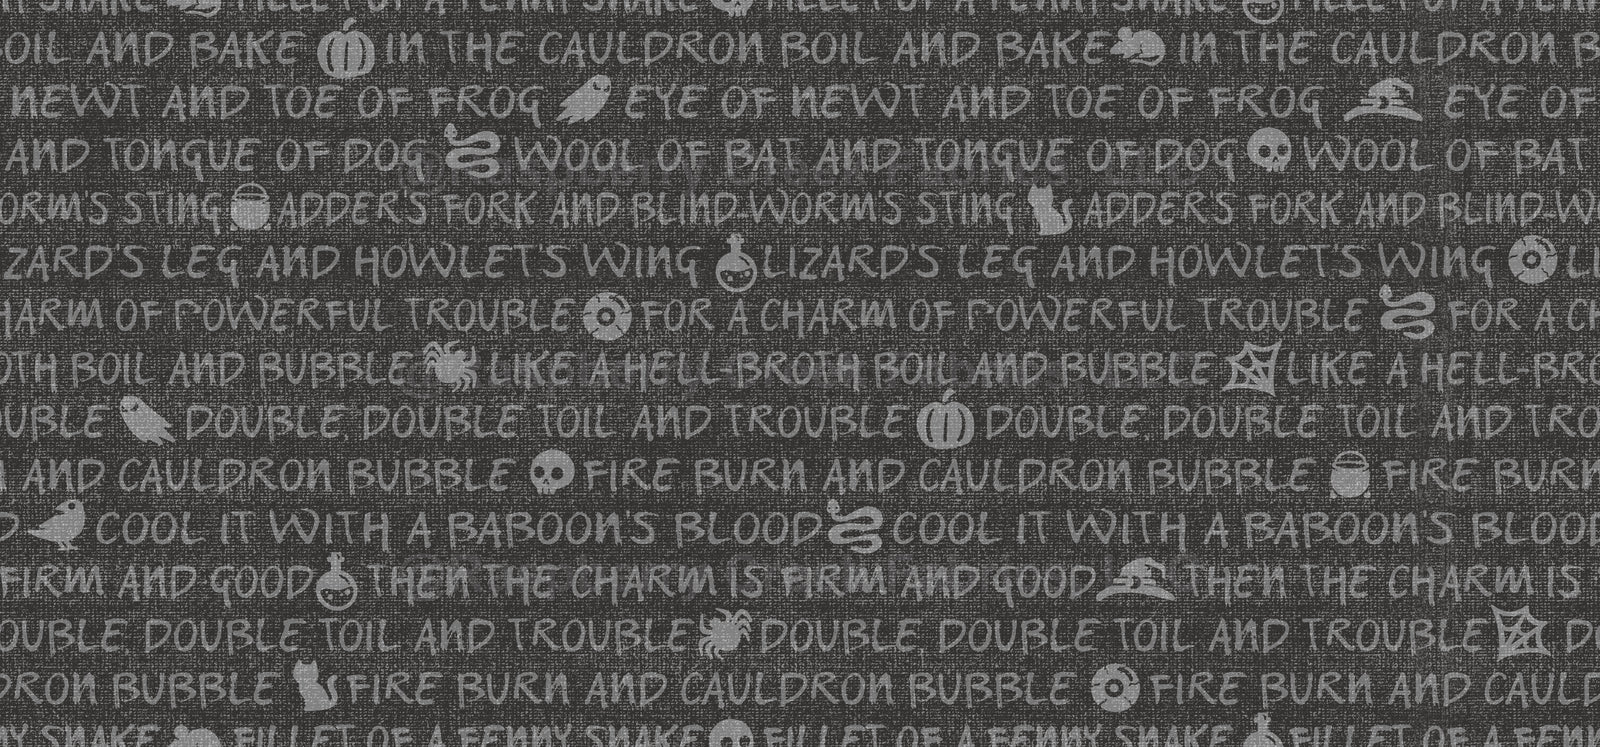 SNAKE FILLET OF A FENNY SNAKE FILLET OF A FENNY SNAKE
OIL AND BAKE IN THE CAULDRON BOIL AND BAKE IN THE CAULDRON B
NEWT AND TOE OF FROG EYE OF NEWT AND TOE OF FROG EYE OF
AND TONGUE OF DOG WOOL OF BAT AND TONGUE OF DOG WOOL OF BAT
ORM'S STING ADDER'S FORK AND BLIND-WORM'S STING ADDER'S FORK AND BLIND-W
ZARD'S LEG AND HOWLET'S WING LIZARD'S LEG AND HOWLET'S WING LI
HARM OF POWERFUL TROUBLE FOR A CHARM OF POWERFUL TROUBLE FOR A CH
OTH BOIL AND BUBBLE LIKE A HELL-BROTH BOIL AND BUBBLE LIKE A HELL-BRO
UBLE DOUBLE, DOUBLE TOIL AND TROUBLE DOUBLE, DOUBLE TOIL AND TRO
AND CAULDRON BUBBLE FIRE BURN AND CAULDRON BUBBLE FIRE BURN
D COOL IT WITH A BABOON'S BLOOD COOL IT WITH A BABOON'S BLOOD
FIRM AND GOOD THEN THE CHARM IS FIRM AND GOOD THEN THE CHARM IS
OUBLE, DOUBLE TOIL AND TROUBLE DOUBLE, DOUBLE TOIL AND TROUBLE D
DRON BUBBLE FIRE BURN AND CAULDRON BUBBLE FIRE BURN AND CAULD
NY SNAKE FILLET OF A FENNY SNAKE FILLET OF A FENN